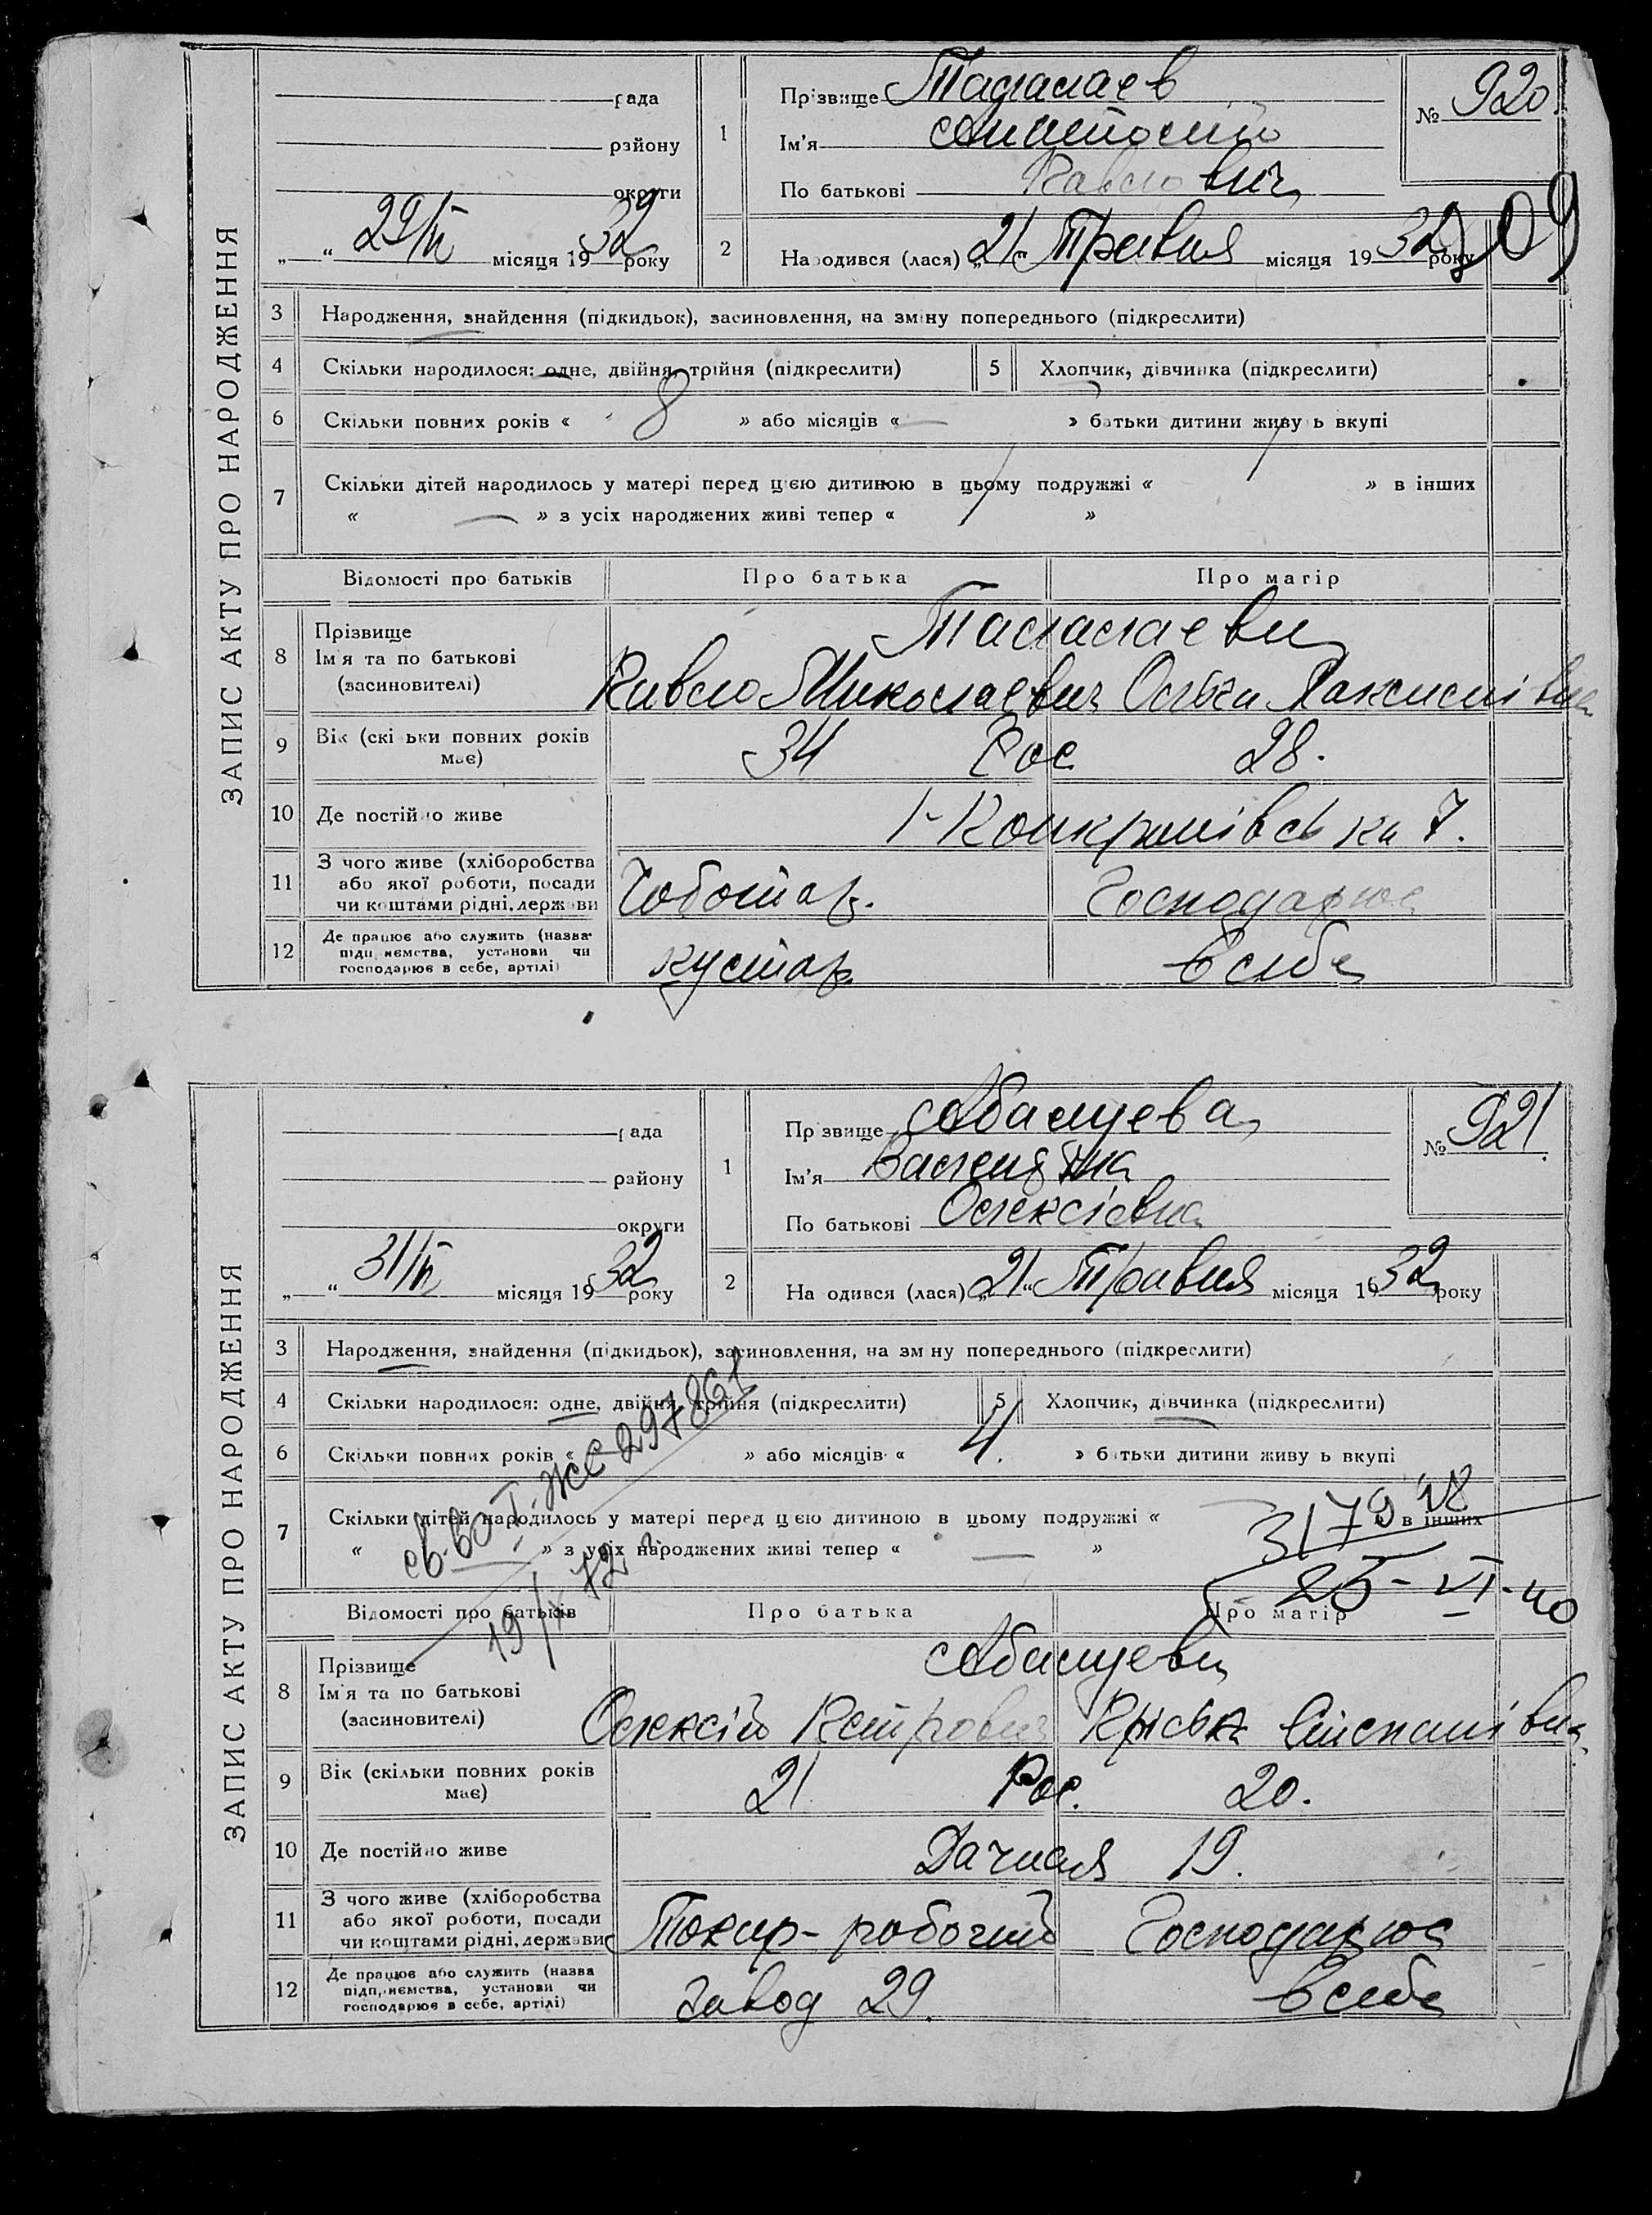 ЗАПИС АКТУ ПРО НАРОДЖЕННЯ
рада
району
округи
„ “ 29/V місяця 1932 року
1
Прізвище
Ім'я Анатолій
По батькові Павлович
№ 920
209
2 Народився (лася) „21“ Травня місяця 1932 року
3 Народження, знайдення (підкидьок), засиновлення, на зміну попереднього (підкреслити)
4 Скільки народилося: одне, двійня, трійня (підкреслити)
5 Хлопчик, дівчинка (підкреслити)
6 Скільки повних років « 8 » або місяців « — » батьки дитини живуть вкупі
7 Скільки дітей народилось у матері перед цією дитиною в цьому подружжі « 1 » в інших
« — » з усіх народжених живі тепер « 1 »
Відомості про батьків Про батька Про матір
8 Прізвище
Ім'я та по батькові
(засиновителі)
Павло Миколаевич Ольга
9 Вік (скільки повних років має) 34 Рос 28.
10 Де постійно живе 7.
11 З чого живе (хліборобства або якої роботи, посади чи коштами рідні, держави Чоботар. Господарює
12 Де працює або служить (назва підприємства, установи чи господарює в себе, артілі) кустар. в себе
ЗАПИС АКТУ ПРО НАРОДЖЕННЯ
рада
району
округи
„ “ 31/V місяця 1932 року
1
Прізвище Абанцева
Ім'я Валентина
По батькові Олексієвна
№ 921.
2 Народився (лася) „21“ Травня місяця 1932 року
3 Народження, знайдення (підкидьок), засиновлення, на зміну попереднього (підкреслити)
4 Скільки народилося: одне, двійня, трійня (підкреслити)
5 Хлопчик, дівчинка (підкреслити)
6 Скільки повних років « » або місяців « 4. » батьки дитини живуть вкупі
7 Скільки дітей народилось у матері перед цією дитиною в цьому подружжі « — » в інших
« — » з усіх народжених живі тепер « — »
св-во I-ЖС 297861
3179
25-VI-40
Відомості про батьків Про батька Про матір
8 Прізвище
Ім'я та по батькові
(засиновителі)
Абанцеви
Олексій Петрович Степанівна
9 Вік (скільки повних років має) 21 Рос. 20.
10 Де постійно живе Дачная 19.
11 З чого живе (хліборобства або якої роботи, посади чи коштами рідні, держави Токар-робочий Господарює
12 Де працює або служить (назва підприємства, установи чи господарює в себе, артілі) Завод 29. в себе